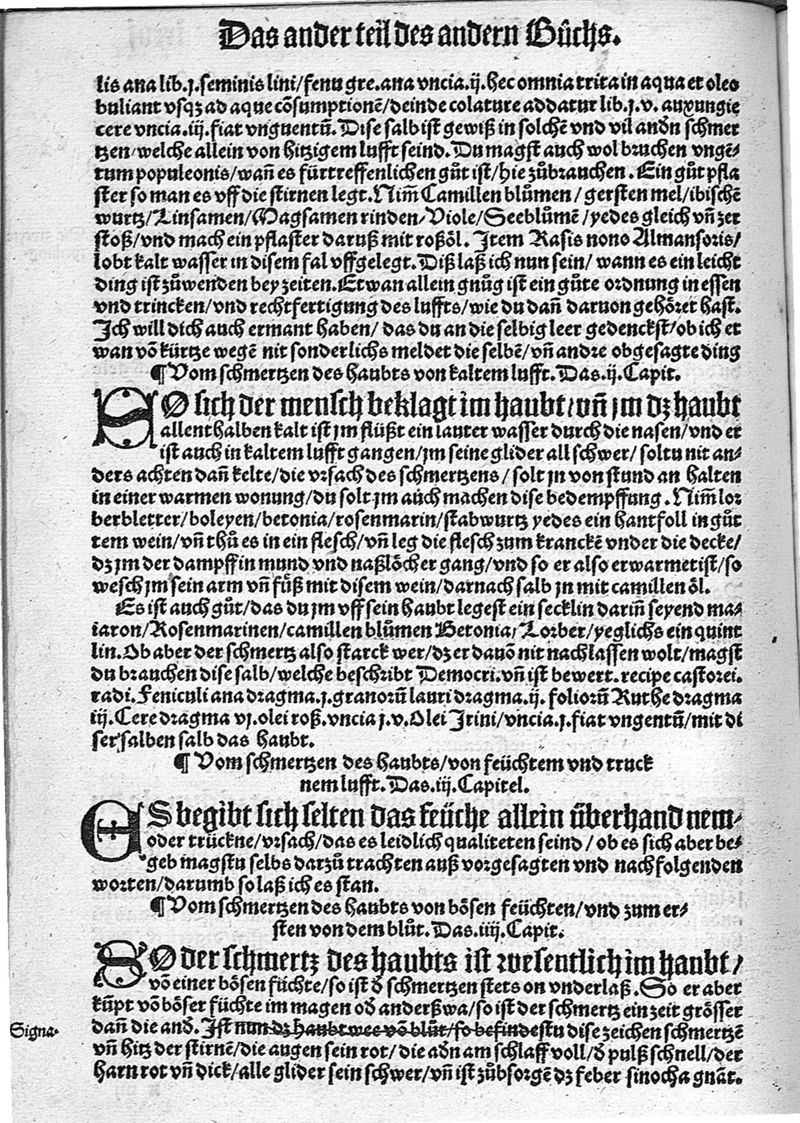 Das ander teil des andern Bůchs.
lis ana lib.j. seminis lini/fenu gre. ana vncia.ij. hec omnia trita in aqua et oleo
buliant vsqȝ ad aque cõsumptionẽ/deinde colature addatur lib.j.v. auxungie
cere vncia.iij. fiat vnguentũ. Dise salb ist gewiß in solchẽ vnd vil andn schmer
tzen/welche allein von hitzigem lufft seind. Du magst auch wol bruchen vngẽ-
tum populeonis/wañ es fürtreffenlichen gůt ist/hie zůbrauchen. Ein gůt pfla
ster so man es vff die stirnen legt. Nim̃ Camillen blůmen/gersten mel/ibischẽ
wurtz/Linsamen/Magsamen rinden/Viole/Seeblůmẽ/yedes gleich vñ zer
stoß/vnd mach ein pflaster daruß mit roßöl. Item Rasis nono Almansoris/
lobt kalt wasser in disem fal vffgelegt. Diß laß ich nun sein/wann es ein leicht
ding ist zůwenden bey zeiten. Etwan allein gnůg ist ein gůte ordnung in essen
vnd trincken/vnd rechtfertigung des luffts/wie du dañ daruon gehöret hast.
Ich will dich auch ermant haben/das du an die selbig leer gedenckst/ob ich et
wan võ kürtze wegẽ nit sonderlichs meldet die selbẽ/vñ andre obgesagte ding
¶ Vom schmertzen des haubts von kaltem lufft. Das.ij.Capit.
SO sich der mensch beklagt im haubt/vñ jm dȝ haubt
allenthalben kalt ist jm flüßt ein lauter wasser durch die nasen/vnd er
ist auch in kaltem lufft gangen/jm seine glider all schwer/soltu nit an-
ders achten dañ kelte/die vrsach des schmertzens/solt jn von stund an halten
in einer warmen wonung/du solt jm auch machen dise bedempffung. Nim̃ lor
berbletter/boleyen/betonia/rosenmarin/stabwurtz yedes ein hantfoll in gůt
tem wein/vñ thů es in ein flesch/vñ leg die flesch zum kranckẽ vnder die decke/
dȝ jm der dampff in mund vnd naßlöcher gang/vnd so er also erwarmet ist/so
wesch jm sein arm vñ füß mit disem wein/darnach salb jn mit camillen öl.
Es ist auch gůt/das du jm vff sein haubt legest ein secklin dariñ seyend ma-
ioron/Rosenmarinen/camillen blůmen Betonia/Lorber/yeglichs ein quint
lin. Ob aber der schmertz also starck wer/dȝ er dauõ nit nachlassen wolt/magst
du brauchen dise salb/welche beschribt Democri. vñ ist bewert. recipe castorei.
radi. Feniculi ana dragma.j. granorũ lauri dragma.ij. foliorũ Ruthe dragma
iij. Cere dragma vj. olei roß. vncia j.v. Olei Irini/vncia.j. fiat vngentũ/mit di
ser salben salb das haubt.
¶ Vom schmertzen des haubts/von feüchtem vnd truck
nem lufft. Das.iij.Capitel.
ES begibt sich selten das feüche allein überhand nem-
oder trückne/vrsach/das es leidlich qualiteten seind/ob es sich aber be-
geb magstu selbs darzů trachten auß vorgesagten vnd nachfolgenden
worten/darumb so laß ich es stan.
¶ Vom schmertzen des haubts von bösen feüchten/vnd zum er-
sten von dem blůt. Das.iiij.Capit.
SO der schmertz des haubts ist wesentlich im haubt/
võ einer bösen füchte/so ist ð schmertzen stets on vnderlaß. So er aber
kũpt võ böser füchte im magen oð anderßwa/so ist der schmertz ein zeit grösser
dañ die and. Ist nun dȝ haubt wee võ blůt/so befindestu dise zeichen schmertzẽ
vñ hitz der stirnẽ/die augen sein rot/die adn am schlaff voll/ð pulß schnell/der
harn rot vñ dick/alle glider sein schwer/vñ ist zůbsorgẽ dȝ feber sinocha gnãt.
Signa-